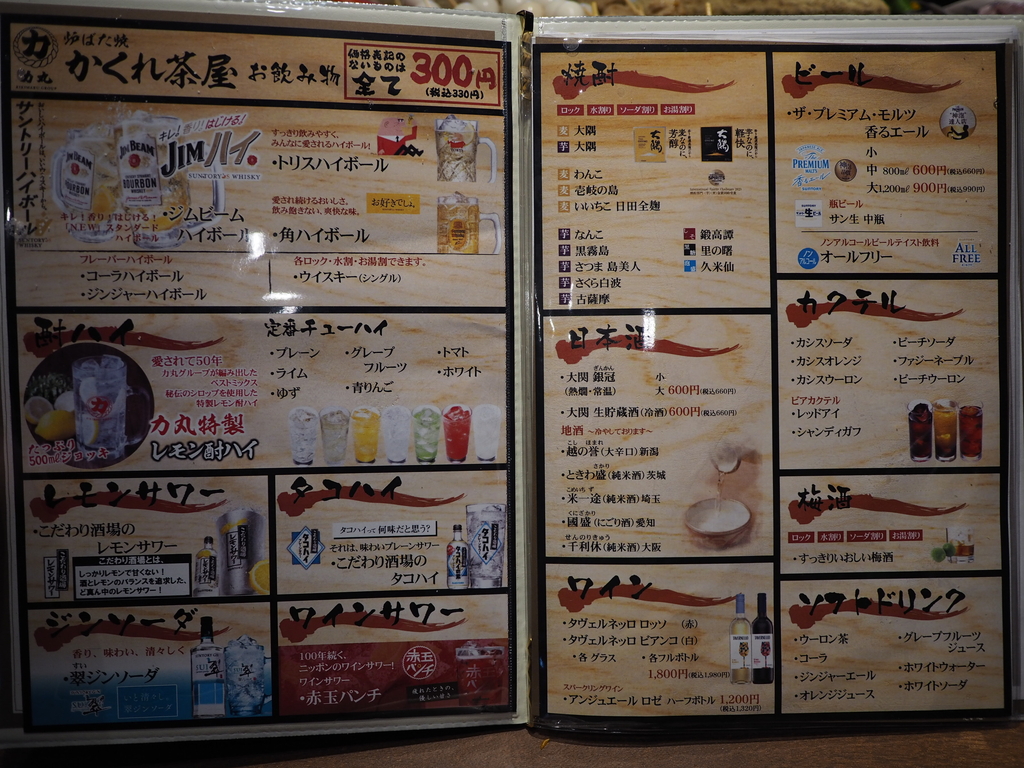 力丸
炉ばた焼
かくれ茶屋 お飲み物
価格表記の
ないものは
全て
300円
(税込330円)
サントリーハイボール
キレ!香り!はじける!
JIMハイ。
SUNTORY WHISKY
JIM BEAM
BOURBON
WHISKEY
キレ!香り!はじける!
「NEW」スタンダード
ハイボール
・ジムビーム
ハイボール
すっきり飲みやすく、
みんなに愛されるハイボール!
・トリスハイボール
愛され続けるおいしさ。
飲み飽きない、爽快な味。
お好きでしょ。
・角ハイボール
フレーバーハイボール
・コーラハイボール
・ジンジャーハイボール
各ロック・水割・お湯割できます。
・ウイスキー(シングル)
酎ハイ
愛されて50年
力丸グループが編み出した
ベストミックス
秘伝のシロップを使用した
特製レモン酎ハイ
力丸特製
レモン酎ハイ
たっぷり
500mlジョッキ
定番チューハイ
・プレーン
・ライム
・ゆず
・グレープ
フルーツ
・青りんご
・トマト
・ホワイト
レモンサワー
・こだわり酒場の
レモンサワー
こだわり酒場とは、
しっかりレモンで甘くない!
酒とレモンのバランスを追求した、
ど真ん中のレモンサワー!
タコハイ
タコハイって何味だと思う?
それは、味わいプレーンサワー
・こだわり酒場の
タコハイ
ジンソーダ
香り、味わい、清々しく
すい
・翠ジンソーダ
翠ジンソーダ
ワインサワー
100年続く、
ニッポンのワインサワー!
ワインサワー
・赤玉パンチ
赤玉
パンチ
焼酎
ロック 水割り ソーダ割り お湯割り
麦 大隅
芋 大隅
麦 わんこ
麦 壱岐の島
麦 いいちこ 日田全麹
芋 なんこ
芋 黒霧島
芋 さつま 島美人
芋 さくら白波
芋 古薩摩
鍛高譚
里の曙
久米仙
日本酒
ぎんかん
・大関 銀冠
(熱燗・常温)
小
大 600円(税込660円)
・大関 生貯蔵酒(冷酒)600円(税込660円)
地酒 ～冷やしております～
こし ほまれ
・越の誉(大辛口)新潟
さかり
・ときわ盛(純米酒)茨城
こめいちず
・米一途(純米酒)埼玉
くにざかり
・國盛(にごり酒)愛知
せんのりきゅう
・千利休(純米酒)大阪
ワイン
・タヴェルネッロ ロッソ (赤)
・タヴェルネッロ ビアンコ(白)
・各 グラス ・各フルボトル
1,800円(税込1,980円)
スパークリングワイン
・アンジュエール ロゼ ハーフボトル 1,200円
(税込1,320円)
ビール
・ザ・プレミアム・モルツ
香るエール
The
PREMIUM
MALT'S
小
中 800ml 600円(税込660円)
大1,200ml 900円(税込990円)
瓶ビール
・サン生 中瓶
ノンアルコールビールテイスト飲料
ノン
アルコール
・オールフリー
ALL
FREE
カクテル
・カシスソーダ
・カシスオレンジ
・カシスウーロン
・ピーチソーダ
・ファジーネーブル
・ピーチウーロン
ビアカクテル
・レッドアイ
・シャンディガフ
梅酒
ロック 水割り ソーダ割り お湯割り
・すっきりいおしい梅酒
ソフトドリンク
・ウーロン茶
・コーラ
・ジンジャーエール
・オレンジジュース
・グレープフルーツ
ジュース
・ホワイトウォーター
・ホワイトソーダ